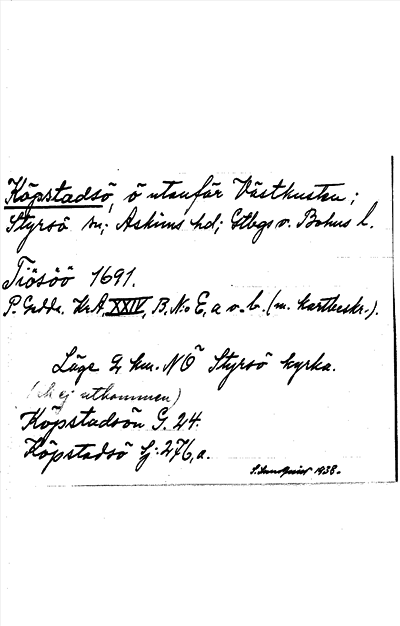 Köpstadsö, ö utanför Västkusten;
Styrsö sn; Askims hd; Gtbgs o. Bohus l.
Tiösöö 1691.
P. Gedda. Kr.A. XXIV, B. N:o E, a o. b. (m. kartbeskr.).
Läge 2 km. NÖ Styrsö kyrka.
ej utkommen)
Köpstadsön G. 24.
Köpstadsö Lj. 276, a.
1938.